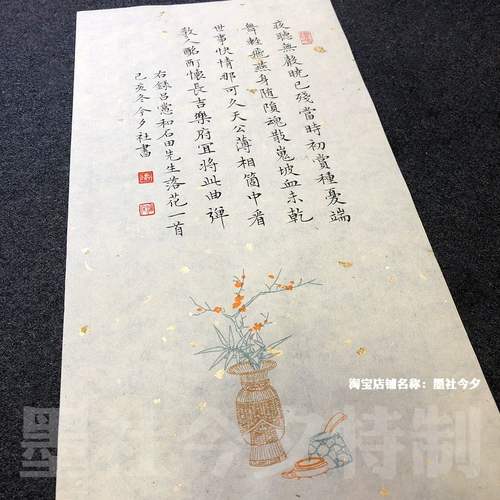 夜聽無聲曉已殘當時初賞種憂端
舞輕飛燕身隨隕魂散嵬坡血未乾
世事快情那可久天公薄相箇中看
教人酩酊懷長吉樂府宜將此曲彈
右錄呂㦂和石田先生落花一首
己亥冬今夕社書
淘宝店铺名称：墨社今夕
墨社今夕特制